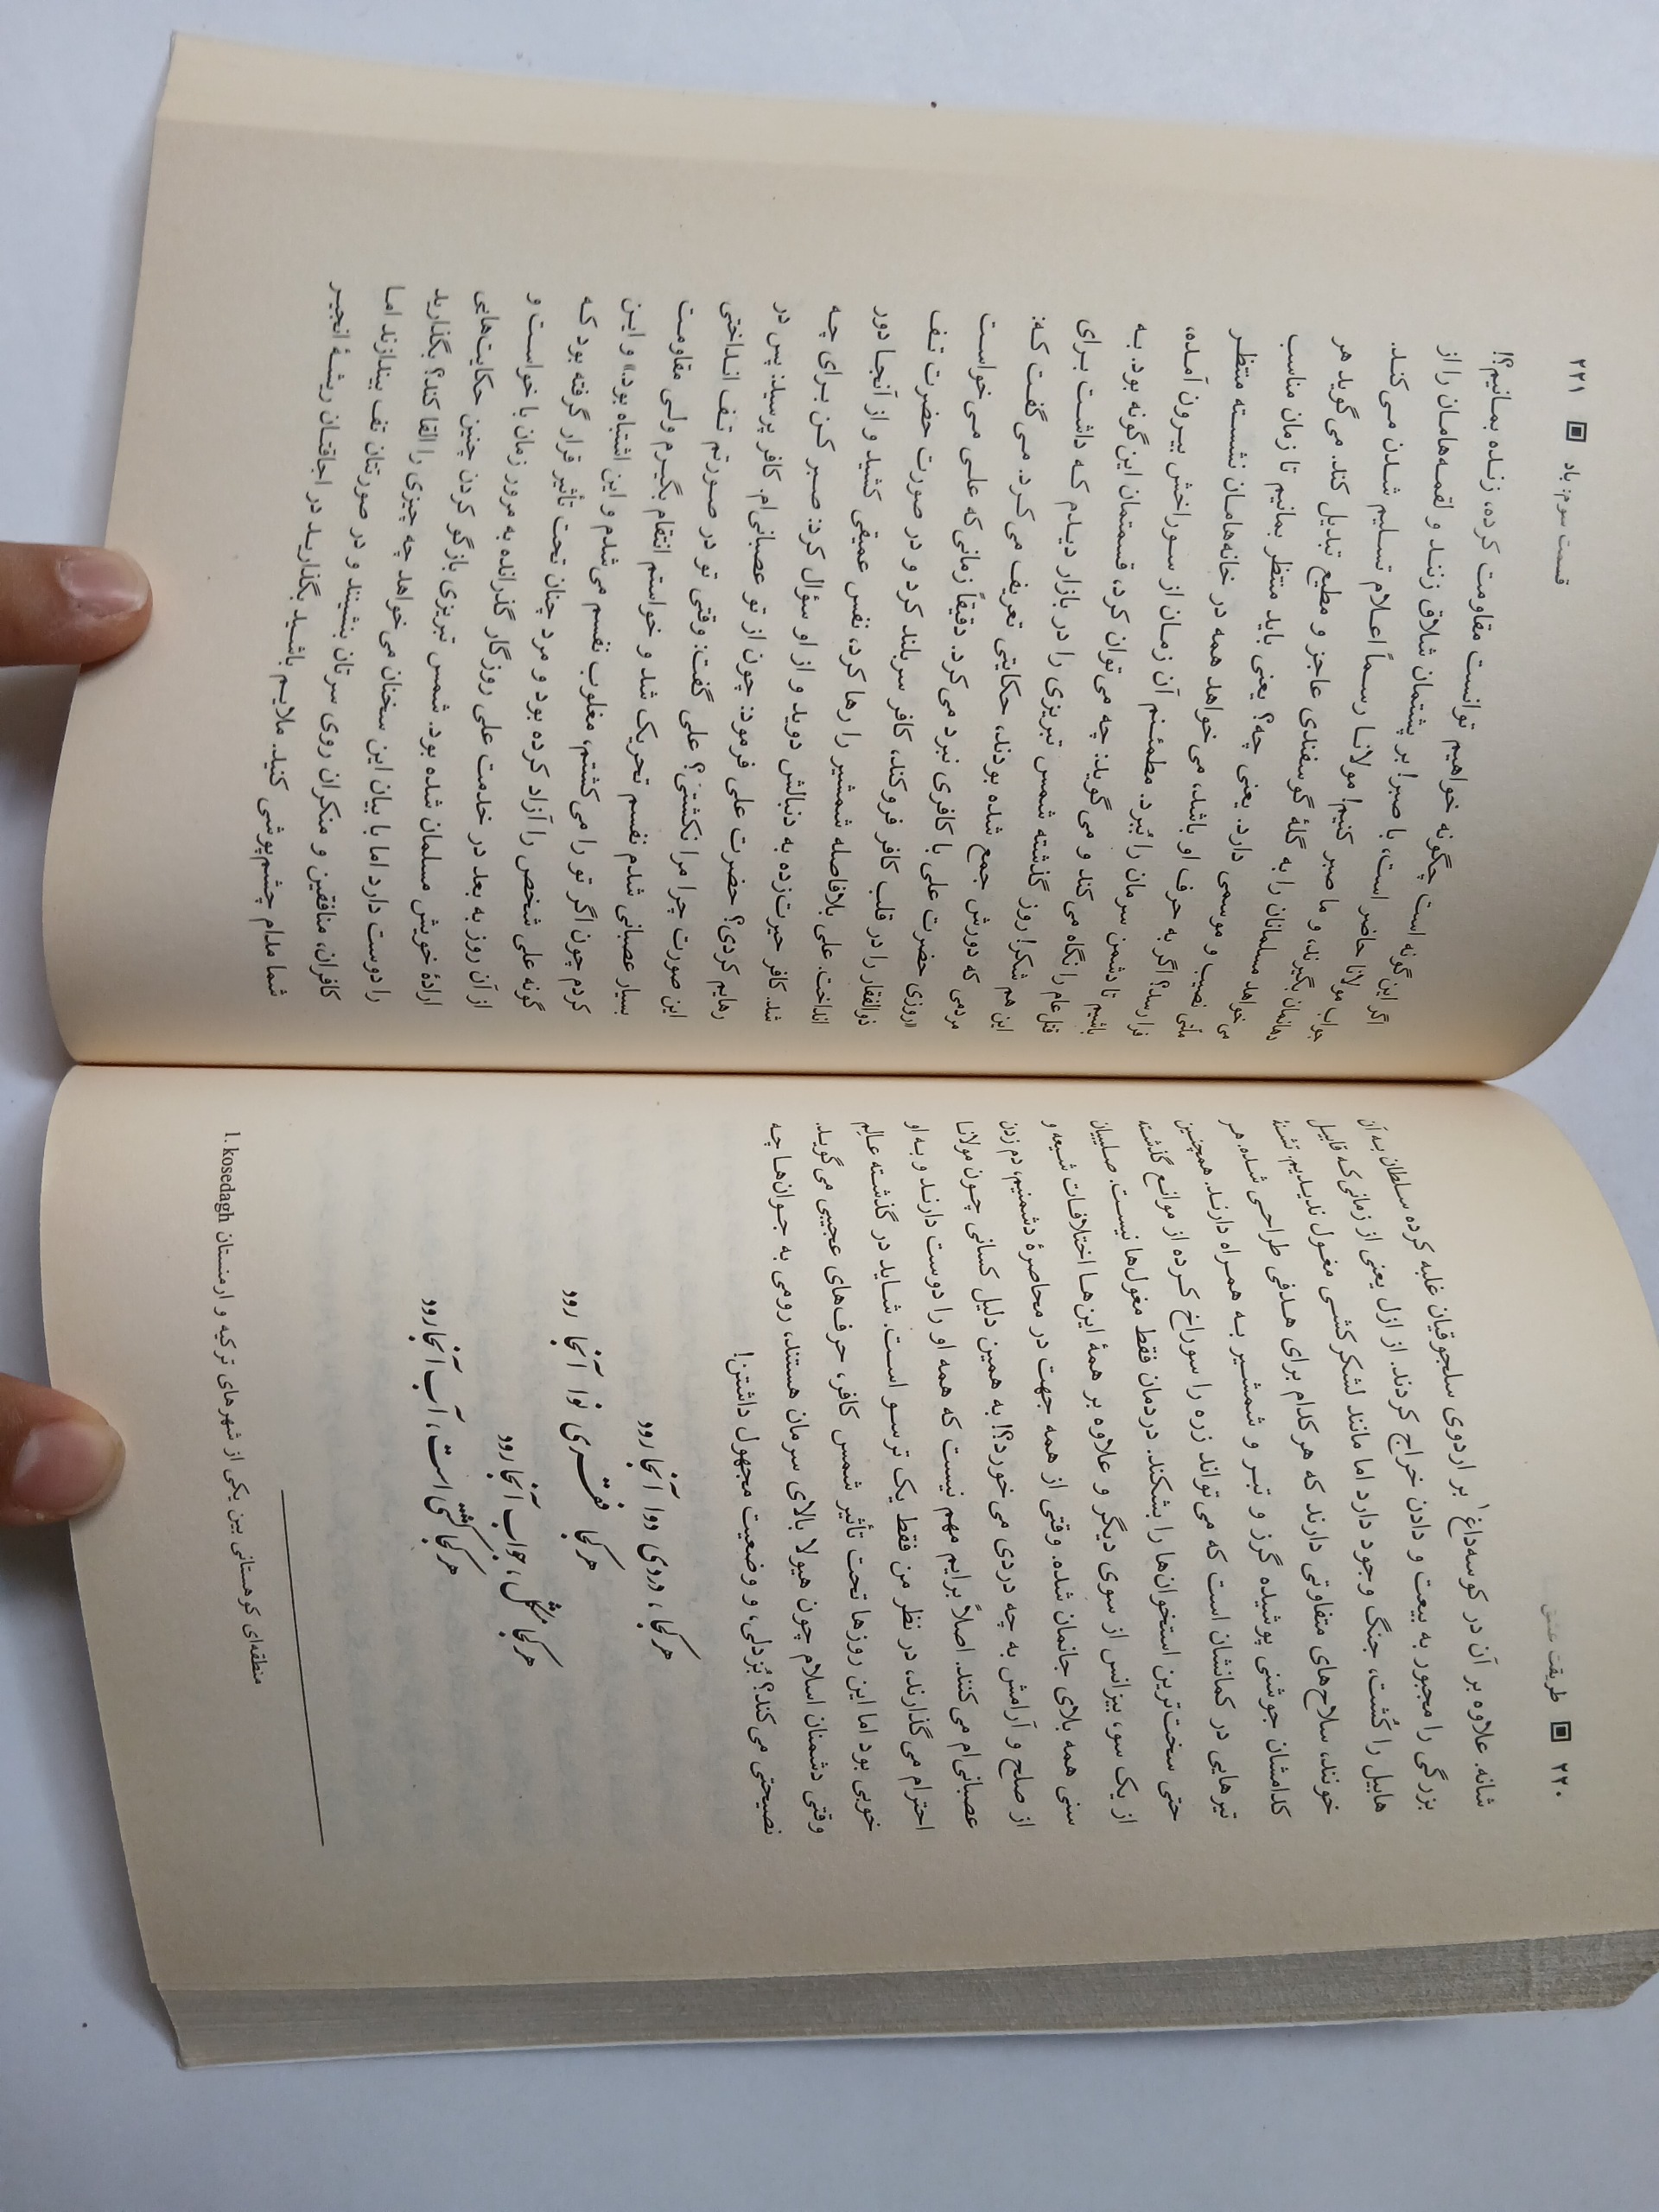 ۲۲۰ طریقت عشق
شانه. علاوه بر آن در کوسه‌داغ۱ بر اردوی سلجوقیان غلبه کرده سلطان به آن
بزرگی را مجبور به بیعت و دادن خراج کردند. از ازل یعنی از زمانی‌که قابیل
هابیل را کُشت، جنگ وجود دارد اما مانند لشکرکشی مغول ندیدیم. تشنۀ
خونند، سلاح‌های متفاوتی دارند که هرکدام برای هدفی طراحی شده. هر
کدامشان جوشنی پوشیده گرز و تبر و شمشیر به همراه دارند. همچنین
تیرهایی در کمانشان است که می‌تواند زره را سوراخ کرده از موانع گذشته
حتی سخت‌ترین استخوان‌ها را بشکند. دردمان فقط مغول‌ها نیست. صلیبیان
از یک سو، بیزانس از سوی دیگر و علاوه بر همۀ این‌ها اختلافات شیعه و
سنی همه بلای جانمان شده. وقتی از همه جهت در محاصرۀ دشمنیم، دم زدن
از صلح و آرامش به چه دردی می‌خورد؟! به همین دلیل کسانی چون مولانا
عصبانی‌ام می‌کنند. اصلاً برایم مهم نیست که همه او را دوست دارند و به او
احترام می‌گذارند، در نظر من فقط یک ترسو است. شاید در گذشته عالِم
خوبی بود اما این روزها تحت تأثیر شمس کافر، حرف‌های عجیبی می‌گوید.
وقتی دشمنان اسلام چون هیولا بالای سرمان هستند، رومی به جوان‌ها چه
نصیحتی می‌کند؟ بُزدلی، و وضعیت مجهول داشتن!
هرکجا، دردی دوا آنجا رود
هرکجا فقری نوا آنجا رود
هرکجا مشکل، جواب آنجا رود
هرکجا کشتی است، آب آنجا رود
1. kosedagh منطقه‌ای کوهستانی بین یکی از شهرهای ترکیه و ارمنستان
قسمت سوم: باد ۲۲۱
اگر این‌گونه است چگونه خواهیم توانست مقاومت کرده، زنده بمانیم؟!
جواب مولانا حاضر است، با صبر! بر پشتمان شلاق زنند و لقمه‌هامان را از
دهانمان بگیرند، و ما صبر کنیم! مولانا رسماً اعلام تسلیم شدن می‌کند.
می‌خواهد مسلمانان را به گلۀ گوسفندی عاجز و مطیع تبدیل کند. می‌گوید هر
ملّتی نصیب و موسمی دارد. یعنی چه؟ یعنی باید منتظر بمانیم تا زمان مناسب
فرا رسد؟ اگر به حرف او باشد، می‌خواهد همه در خانه‌هامان نشسته منتظر
باشیم تا دشمن سرمان را بُبرد. مطمئنم آن زمان از سوراخش بیرون آمده،
قتل‌عام را نگاه می‌کند و می‌گوید: چه می‌توان کرد، قسمتمان این‌گونه بود. به
این هم شکر! روز گذشته شمس تبریزی را در بازار دیدم که داشت برای
مردمی که دورش جمع شده بودند، حکایتی تعریف می‌کرد. می‌گفت که:
«روزی حضرت علی با کافری نبرد می‌کرد. دقیقاً زمانی‌که علی می‌خواست
ذوالفقار را در قلب کافر فرو کند، کافر سر بلند کرد و در صورت حضرت تف
انداخت. علی بلافاصله شمشیر را رها کرد، نفس عمیقی کشید و از آنجا دور
شد. کافر حیرت‌زده به دنبالش دوید و از او سؤال کرد: صبر کن برای چه
رهایم کردی؟ حضرت علی فرمود: چون از تو عصبانی‌ام. کافر پرسید: پس در
این صورت چرا مرا نکشتی؟ علی گفت: وقتی تو در صورتم تف انداختی
بسیار عصبانی شدم نفسم تحریک شد و خواستم انتقام بگیرم ولی مقاومت
کردم چون اگر تو را می‌کشتم، مغلوب نفسم می‌شدم و این اشتباه بود.» و این
گونه علی شخص را آزاد کرده بود و مرد چنان تحت تأثیر قرار گرفته بود که
از آن روز به بعد در خدمت علی روزگار گذرانده به مرور زمان با خواست و
ارادۀ خویش مسلمان شده بود. شمس تبریزی بازگو کردن چنین حکایت‌هایی
را دوست دارد اما با بیان این سخنان می‌خواهد چه چیزی را القا کند؟ بگذارید
کافران، منافقین و منکران روی سرتان بنشینند و در صورتتان تف بیندازند اما
شما مدام چشم‌پوشی کنید. ملایم باشید بگذارید در اجاقتان ریشۀ انجیر